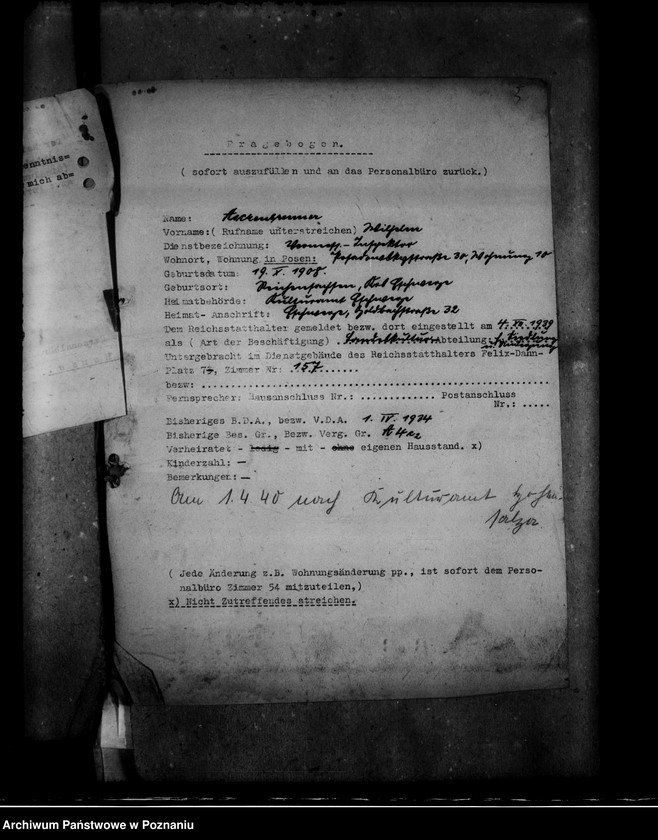 3
enntnis=
mich ab=
Fragebogen.
( sofort auszufüllen und an das Personalbüro zurück.)
Name:
Vorname:( Rufname unterstreichen) Wilhelm
Dienstbezeichnung: Vermess.-Inspektor
Wohnort, Wohnung in Posen: 30, Wohnung 10
Geburtsdatum: 19. V. 1908.
Geburtsort: Reichensachsen, Krs Eschwege
Heimatbehörde: Kulturamt Eschwege
Heimat- Anschrift: Eschwege, 32
Dem Reichsstatthalter gemeldet bezw. dort eingestellt am 1939
als ( Art der Beschäftigung) Landeskultur Abteilung:
Untergebracht im Dienstgebäude des Reichsstatthalters Felix-Dahn-
Platz Zimmer Nr: 157
bezw:
Fernsprecher: Hausanschluss Nr.: ............ Postanschluss
Nr.: .....
Bisheriges B.D.A., bezw. V.D.A. 1. IV. 1934
Bisherige Bes. Gr., Bezw. Verg. Gr.
Verheiratet - ledig - mit - ohne eigenen Hausstand. x)
Kinderzahl: —
Bemerkungen: —
Am 1.4 40 nach Kulturamt Hohen-
salza
( Jede Änderung z.B. Wohnungsänderung pp., ist sofort dem Perso-
nalbüro Zimmer 54 mitzuteilen,)
x) Nicht Zutreffendes streichen.
Archiwum Państwowe w Poznaniu